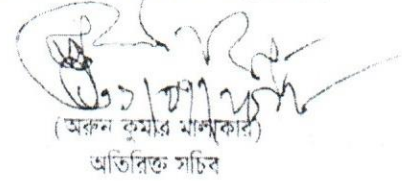 (অরুন কুমার মালাকার)
অতিরিক্ত সচিব